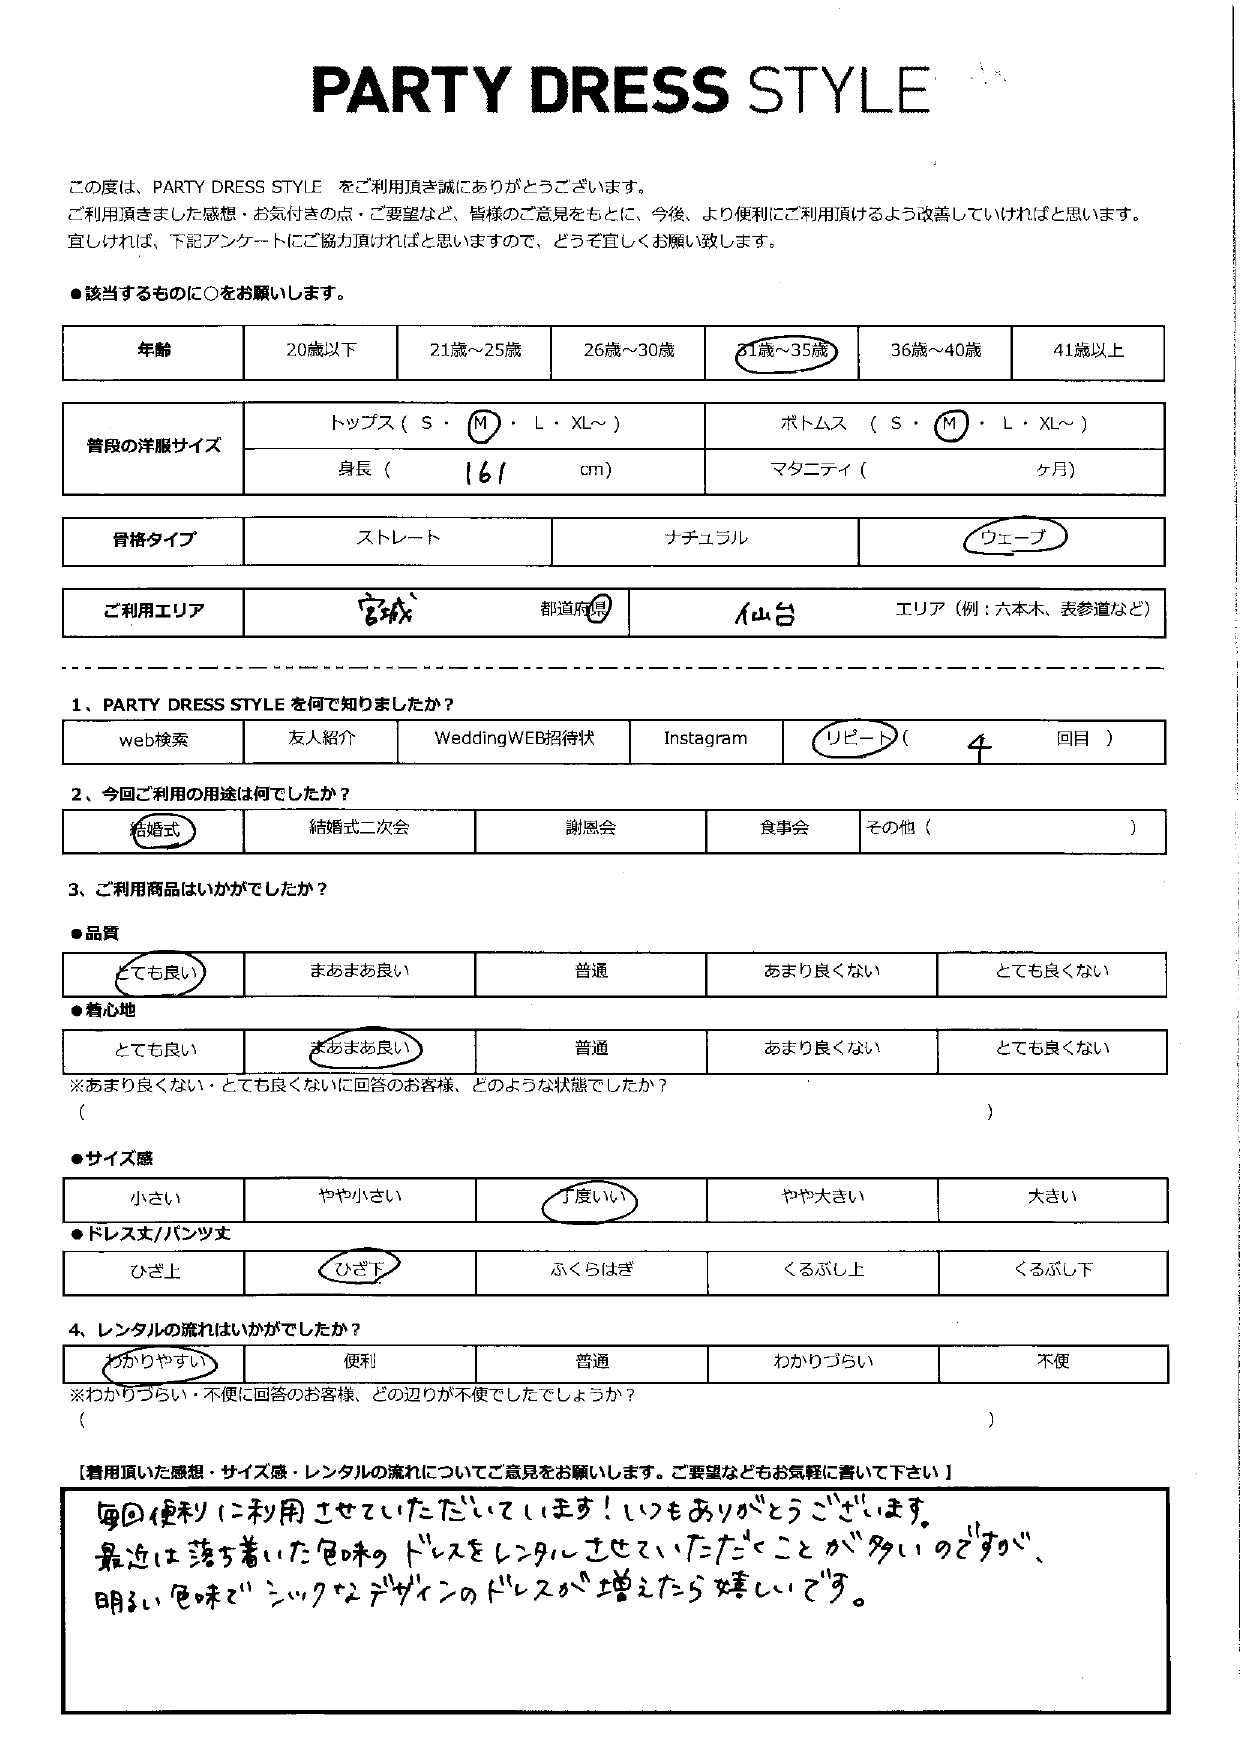 PARTY DRESS STYLE
この度は、PARTY DRESS STYLE をご利用頂き誠にありがとうございます。
ご利用頂きました感想・お気付きの点・ご要望など、皆様のご意見をもとに、今後、より便利にご利用頂けるよう改善していければと思います。
宜しければ、下記アンケートにご協力頂ければと思いますので、どうぞ宜しくお願い致します。
●該当するものに○をお願いします。
年齢 20歳以下 21歳～25歳 26歳～30歳 31歳～35歳 36歳～40歳 41歳以上
普段の洋服サイズ トップス ( S ・ M ・ L ・ XL～ ) ボトムス ( S ・ M ・ L ・ XL～ )
身長 ( 161 cm) マタニティ ( ケ月)
骨格タイプ ストレート ナチュラル ウェーブ
ご利用エリア 宮城 都道府県 仙台 エリア（例：六本木、表参道など）
1、PARTY DRESS STYLE を何で知りましたか？
web検索 友人紹介 WeddingWEB招待状 Instagram リピート ( 4 回目 )
2、今回ご利用の用途は何でしたか？
結婚式 結婚式二次会 謝恩会 食事会 その他 ( )
3、ご利用商品はいかがでしたか？
●品質
とても良い まあまあ良い 普通 あまり良くない とても良くない
●着心地
とても良い まあまあ良い 普通 あまり良くない とても良くない
※あまり良くない・とても良くないに回答のお客様、どのような状態でしたか？
( )
●サイズ感
小さい やや小さい 丁度いい やや大きい 大きい
●ドレス丈/パンツ丈
ひざ上 ひざ下 ふくらはぎ くるぶし上 くるぶし下
4、レンタルの流れはいかがでしたか？
わかりやすい 便利 普通 わかりづらい 不便
※わかりづらい・不便に回答のお客様、どの辺りが不便でしたでしょうか？
( )
【着用頂いた感想・サイズ感・レンタルの流れについてご意見をお願いします。ご要望などもお気軽に書いて下さい 】
毎回便利に利用させていただいています！いつもありがとうございます。
最近は落ち着いた色味のドレスをレンタルさせていただくことが多いのですが、
明るい色味でシックなデザインのドレスが増えたら嬉しいです。